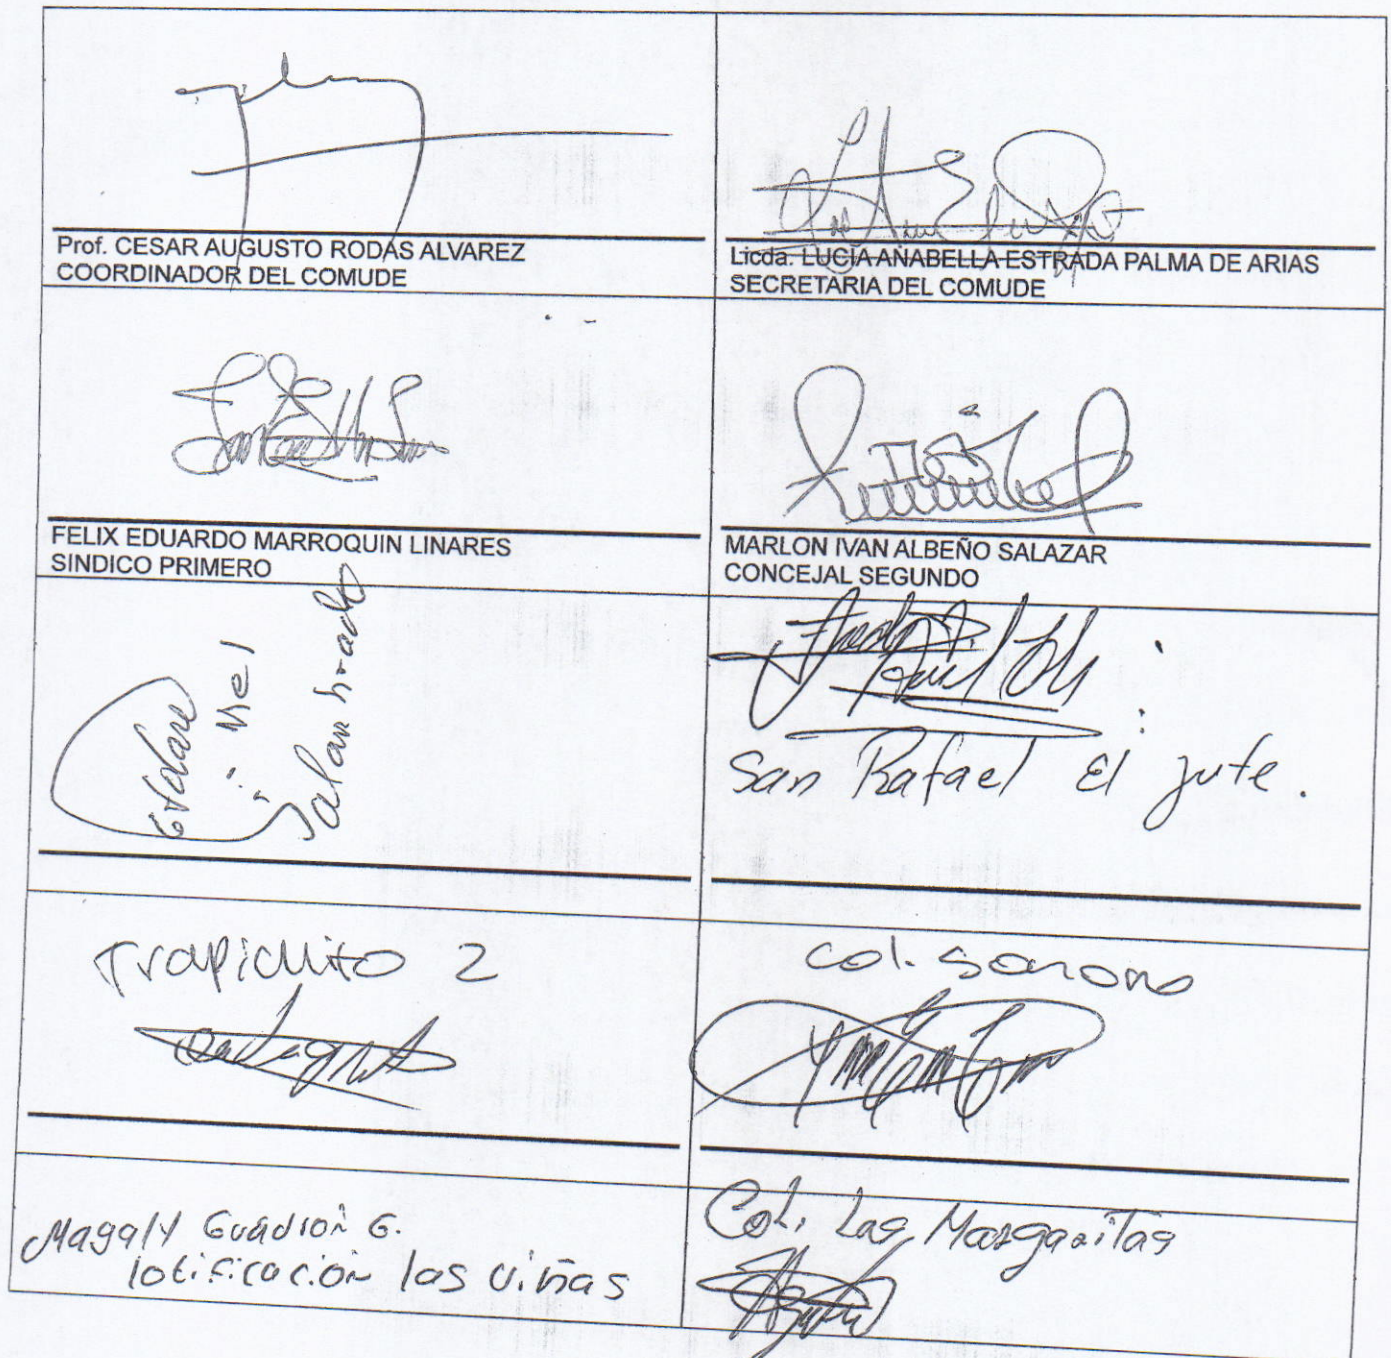 Prof. CESAR AUGUSTO RODAS ALVAREZ
COORDINADOR DEL COMUDE
Licda. LUCIA ANABELLA ESTRADA PALMA DE ARIAS
SECRETARIA DEL COMUDE
FELIX EDUARDO MARROQUIN LINARES
SINDICO PRIMERO
MARLON IVAN ALBEÑO SALAZAR
CONCEJAL SEGUNDO
San Rafael El jute.
Trapichito 2
col. Sonora
Magaly Guadrón G.
lotificación las viñas
Col. Las Margaritas